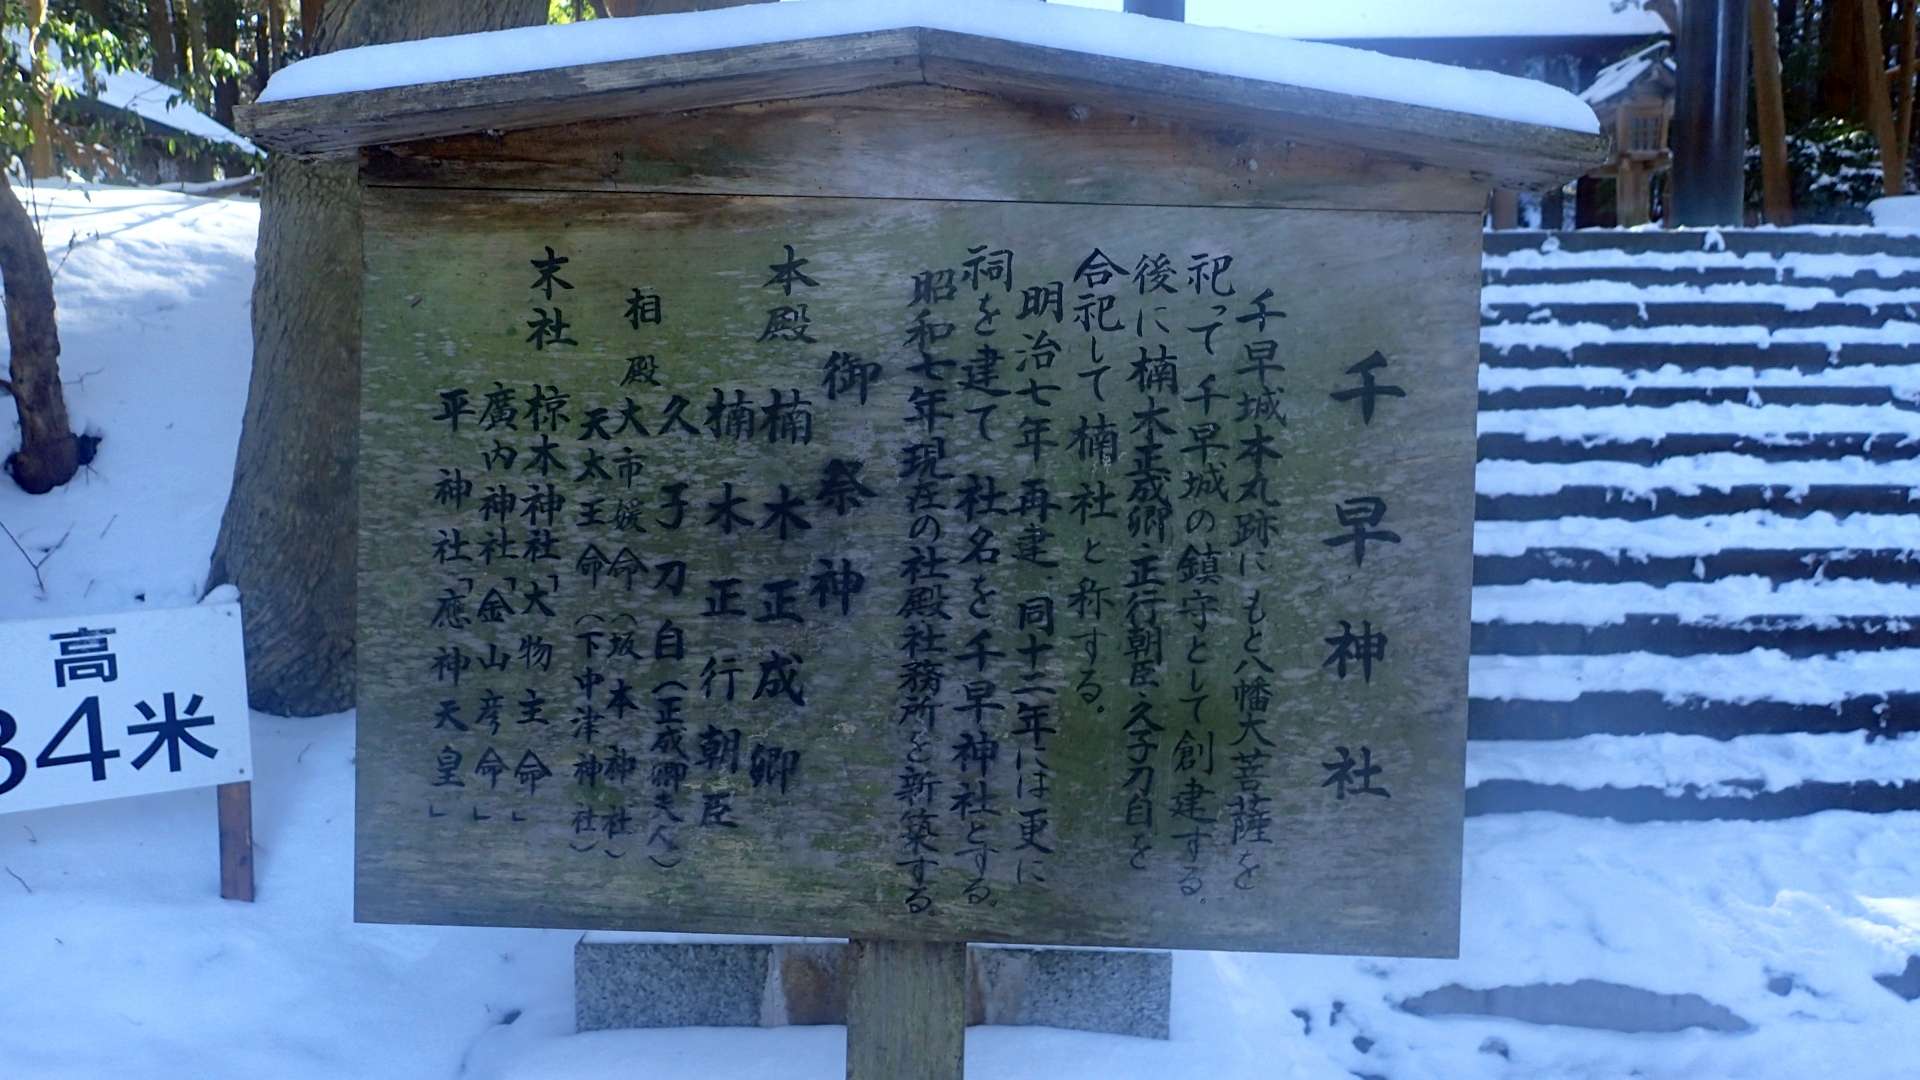 千早神社
千早城本丸跡にもと八幡大菩薩を
祀って千早城の鎮守として創建する。
後に楠木正成卿、正行朝臣、久子刀自を
合祀して楠社と称する。
明治七年再建、同十二年には更に
祠を建て社名を千早神社とする。
昭和七年現在の社殿社務所を新築する。
御祭神
本殿 楠木正成卿
楠木正行朝臣
久子刀自(正成卿夫人)
相殿 大市媛命(坂本神社)
天太王命(下中津神社)
末社 椋木神社「大物主命」
廣内神社「金山彦命」
平神社「應神天皇」
高
34米